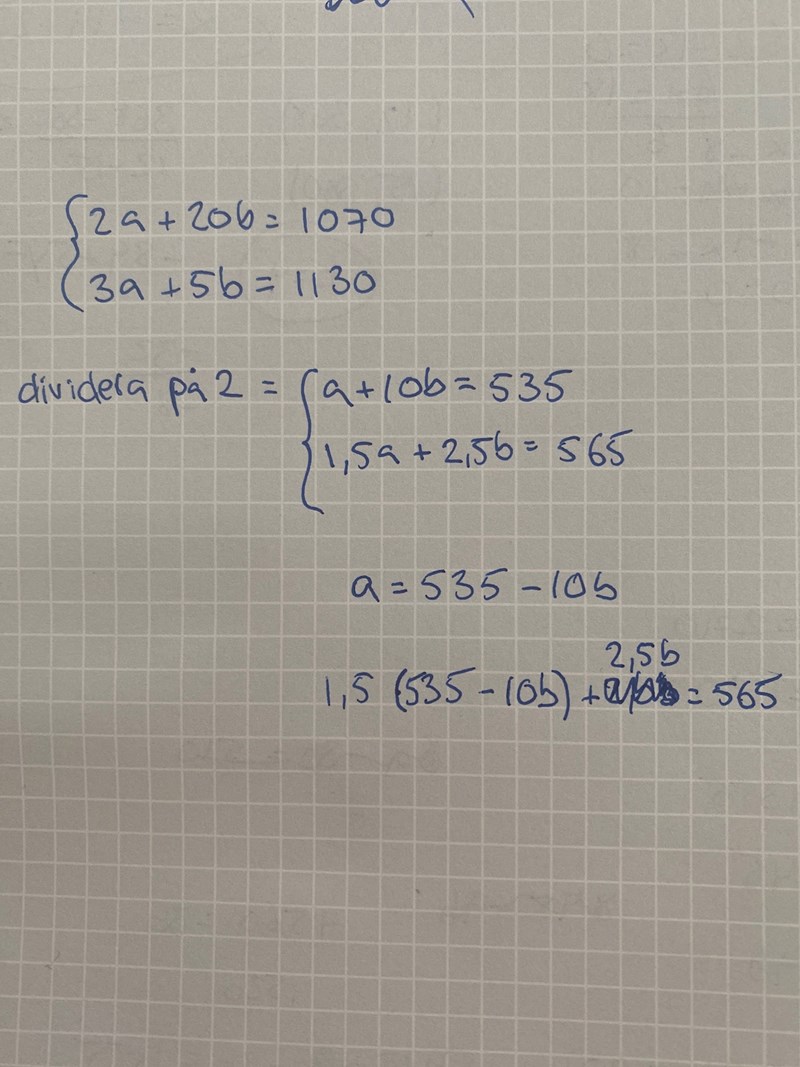 2a + 20b = 1070
3a + 5b = 1130
dividera på 2 = a + 10b = 535
1,5a + 2,5b = 565
a = 535 - 10b
2,5b
1,5 (535 - 10b) + = 565